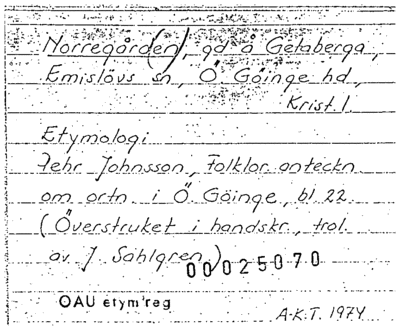 Norregården), gd å Getaberga,
Emislövs sn, Ö Göinge hd,
Krist. l.
Etymologi
Pehr Johnsson, Folklor. anteckn
om ortn i Ö. Göinge, bl 22
(Överstruket i handskr., trol.
av J. Sahlgren)
00025070
OAU etym'reg
A.K.T. 1974